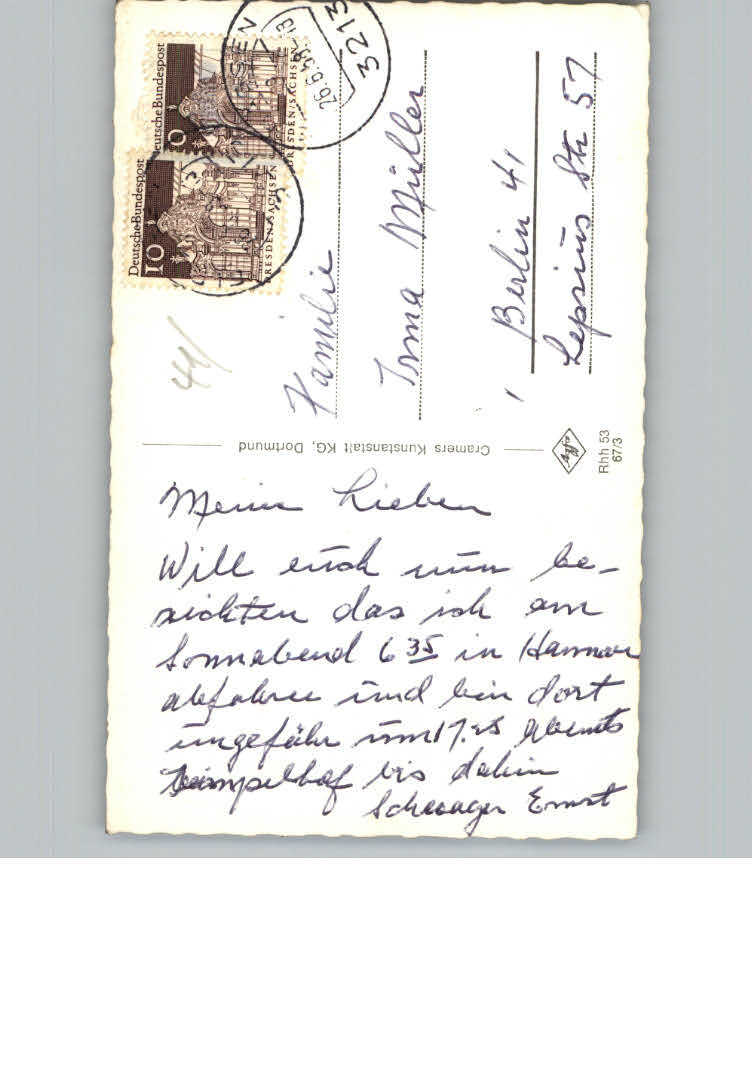 Meine Lieben
Will euch nun be-
richten das ich am
Sonnabend 6 35 in Hannover
abfahre und bin dort
ungefähr um 17. abents
bis dahin
Schwager Ernst
Familie
Irma Müller
Berlin 41
Lepsius Str 57
44/
Cramers Kunstanstalt KG, Dortmund
Agfa
Rhh 53
67/3
Deutsche Bundespost
10
DRESDEN/SACHSEN
Deutsche Bundespost
DRESDEN/SACHSEN
3213